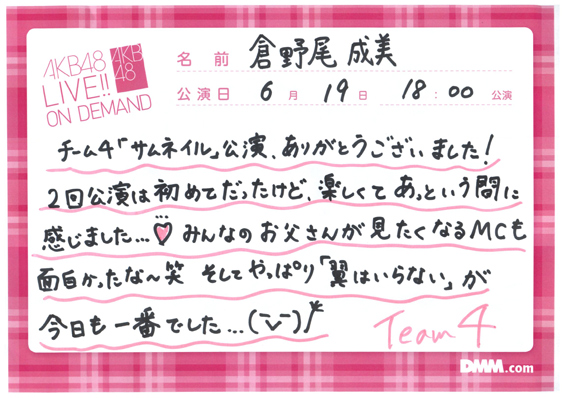 AKB48
LIVE!!
ON DEMAND
AKB
48
名前 倉野尾 成美
公演日 6月 19日 18:00 公演
チーム4「サムネイル」公演、ありがとうございました!
2回公演は初めてだったけど、楽しくてあっという間に
感じました...♡ みんなのお父さんが見たくなるMCも
面白かったな〜笑 そしてやっぱり「翼はいらない」が
今日も一番でした...(˘⌣˘)/
Team 4
DMM.com